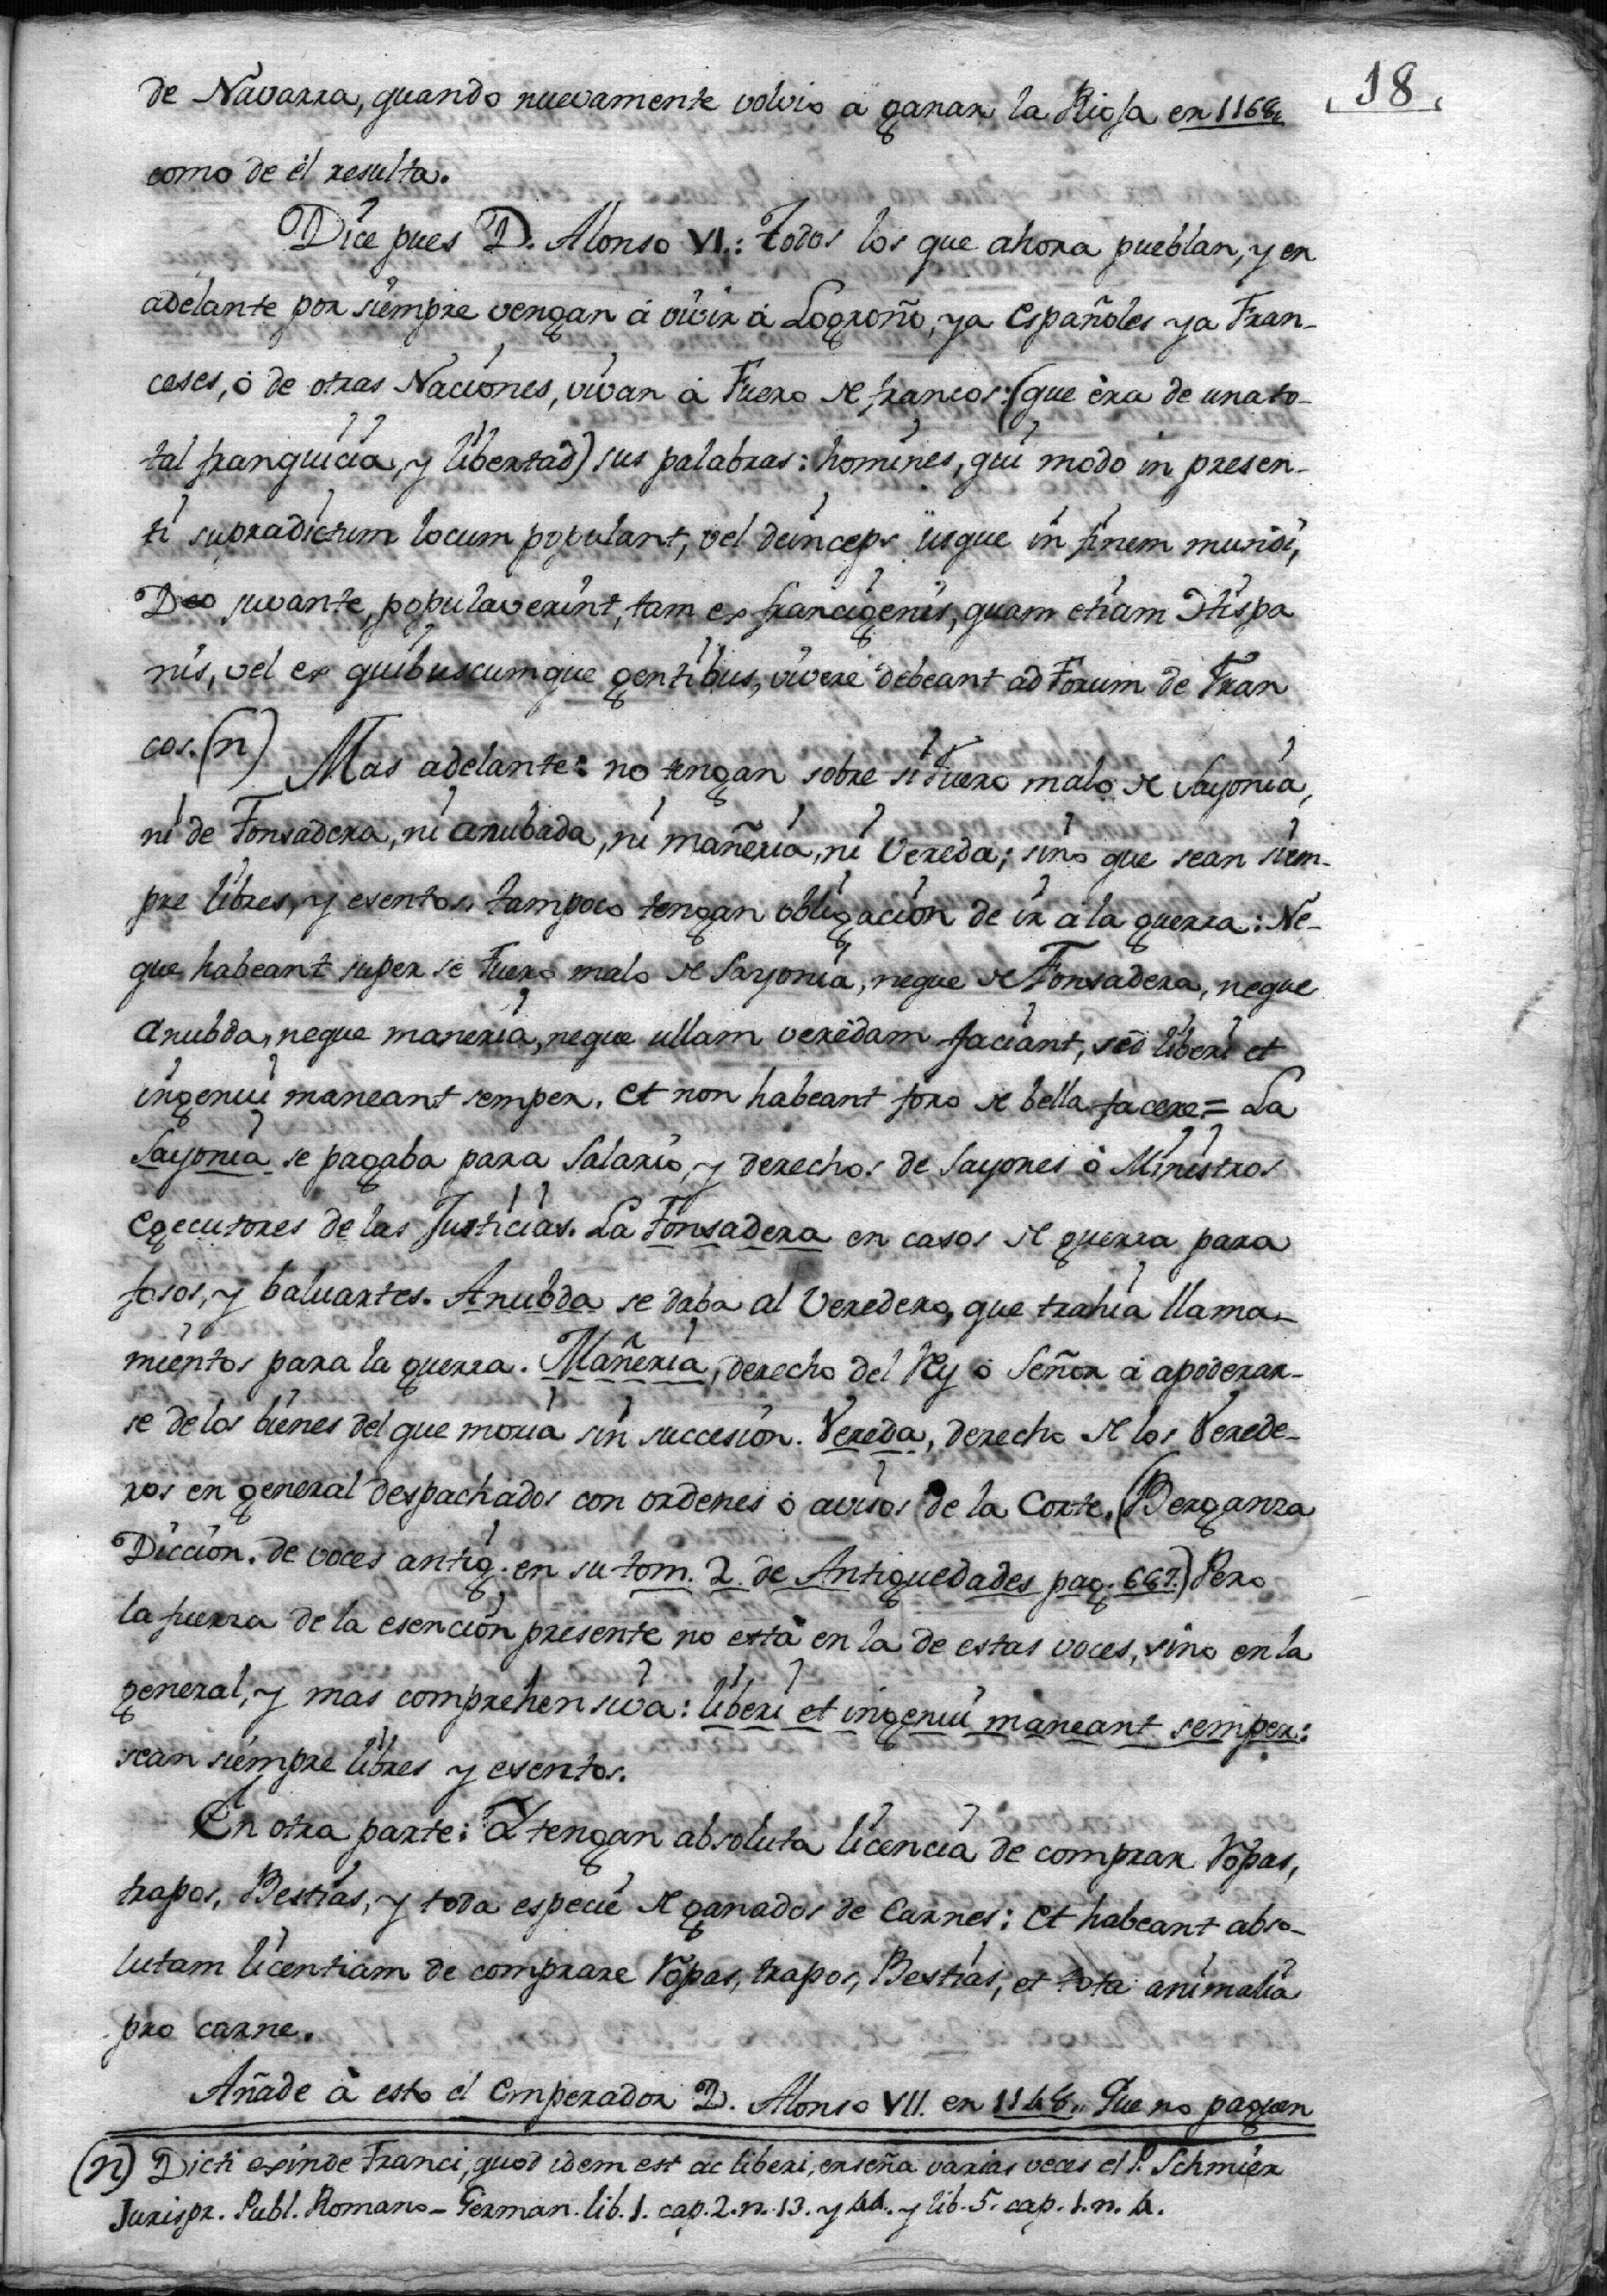 18
de Navarra, quando nuevamente volvio a ganar la Rioja en 1168,
como de èl resulta.
Dice pues D. Alonso VI.: todos los que ahora pueblan, y en
adelante por siempre vengan á vivir á Logroño, ya Españoles ya Fran-
ceses, ó de otras Naciones, vivan á Fuero de francos: (que èra de una to-
tal franquicia, y libertad) sus palabras: homines, qui modo in presen-
ti supradictum locum populant, vel deinceps usque in finem mundi,
Deo juvante, populaverint, tam ex francigenis, quam etiam Hispa
nis, vel ex quibuscumque gentibus, vivere debeant ad Forum de Fran
cos. (n) Mas adelante: no tengan sobre si Fuero malo de Sayonia,
ni de Fonsadera, ni anubada, ni mañeria, ni Vereda; sino que sean siem-
pre libres, y esentos, tampoco tengan obligacion de ir a la guerra: Ne-
que habeant super se Fuero malo de Sayonia, neque de Fonsadera, neque
Anubda, neque maneria, neque ullam veredam faciant, sed liberi et
ingenui maneant semper, et non habeant foro de bella facere = La
Sayonia se pagaba para Salario, y derechos de Sayones ò Ministros
Egecutores de las Justicias. La Fonsadera en casos de guerra para
fosos, y baluartes. Anubda se daba al Veredero, que trahia llama-
mientos para la guerra. Mañeria, derecho del Rey ò Señor á apoderar-
se de los bienes del que moria sin succesion. Vereda, derecho de los Verede-
ros en general despachados con ordenes ò avisos de la Corte. (Berganza
Diccion. de voces antig. en su tom. 2. de Antiguedades pag. 687.) Pero
la fuerza de la esencion presente no está en la de estas voces, sino en la
general, y mas comprehensiva: liberi et ingenui maneant semper:
sean siempre libres y esentos.
En otra parte: Y tengan absoluta licencia de comprar Ropas,
trapos, Bestias, y toda especie de ganados de Carnes: Et habeant abso-
lutam licentiam de comprare Ropas, trapos, Bestias, et tota animalia
pro carne.
Añade à esto el Emperador D. Alonso VII. en 1148. Que no paguen
(n) Dicti exinde Franci, quod idem est ac liberi, enseña varias veces el P. Schmier
Jurispr. Publ. Romano-German. lib. 1. cap. 2. n. 13. y 44. y lib. 5. cap. 1. n. 4.